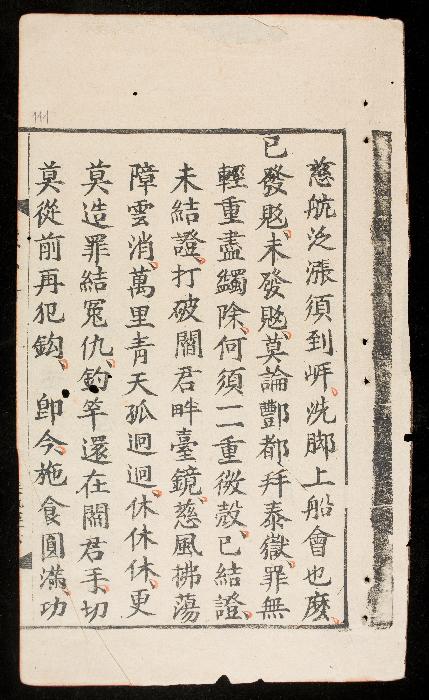 慈航泛漲須到岍洗脚上船會也麽
已發覺未發覺莫論酆都拜泰嶽罪無
輕重盡蠲除何須一二重微殼已結證
未結證打破閻君畔臺鏡慈風拂蕩
障雲消萬里青天孤迥迥休休休更
莫造罪結冤仇釣竿還在閻君手切
莫從前再犯鈎卽今施食圓滿功